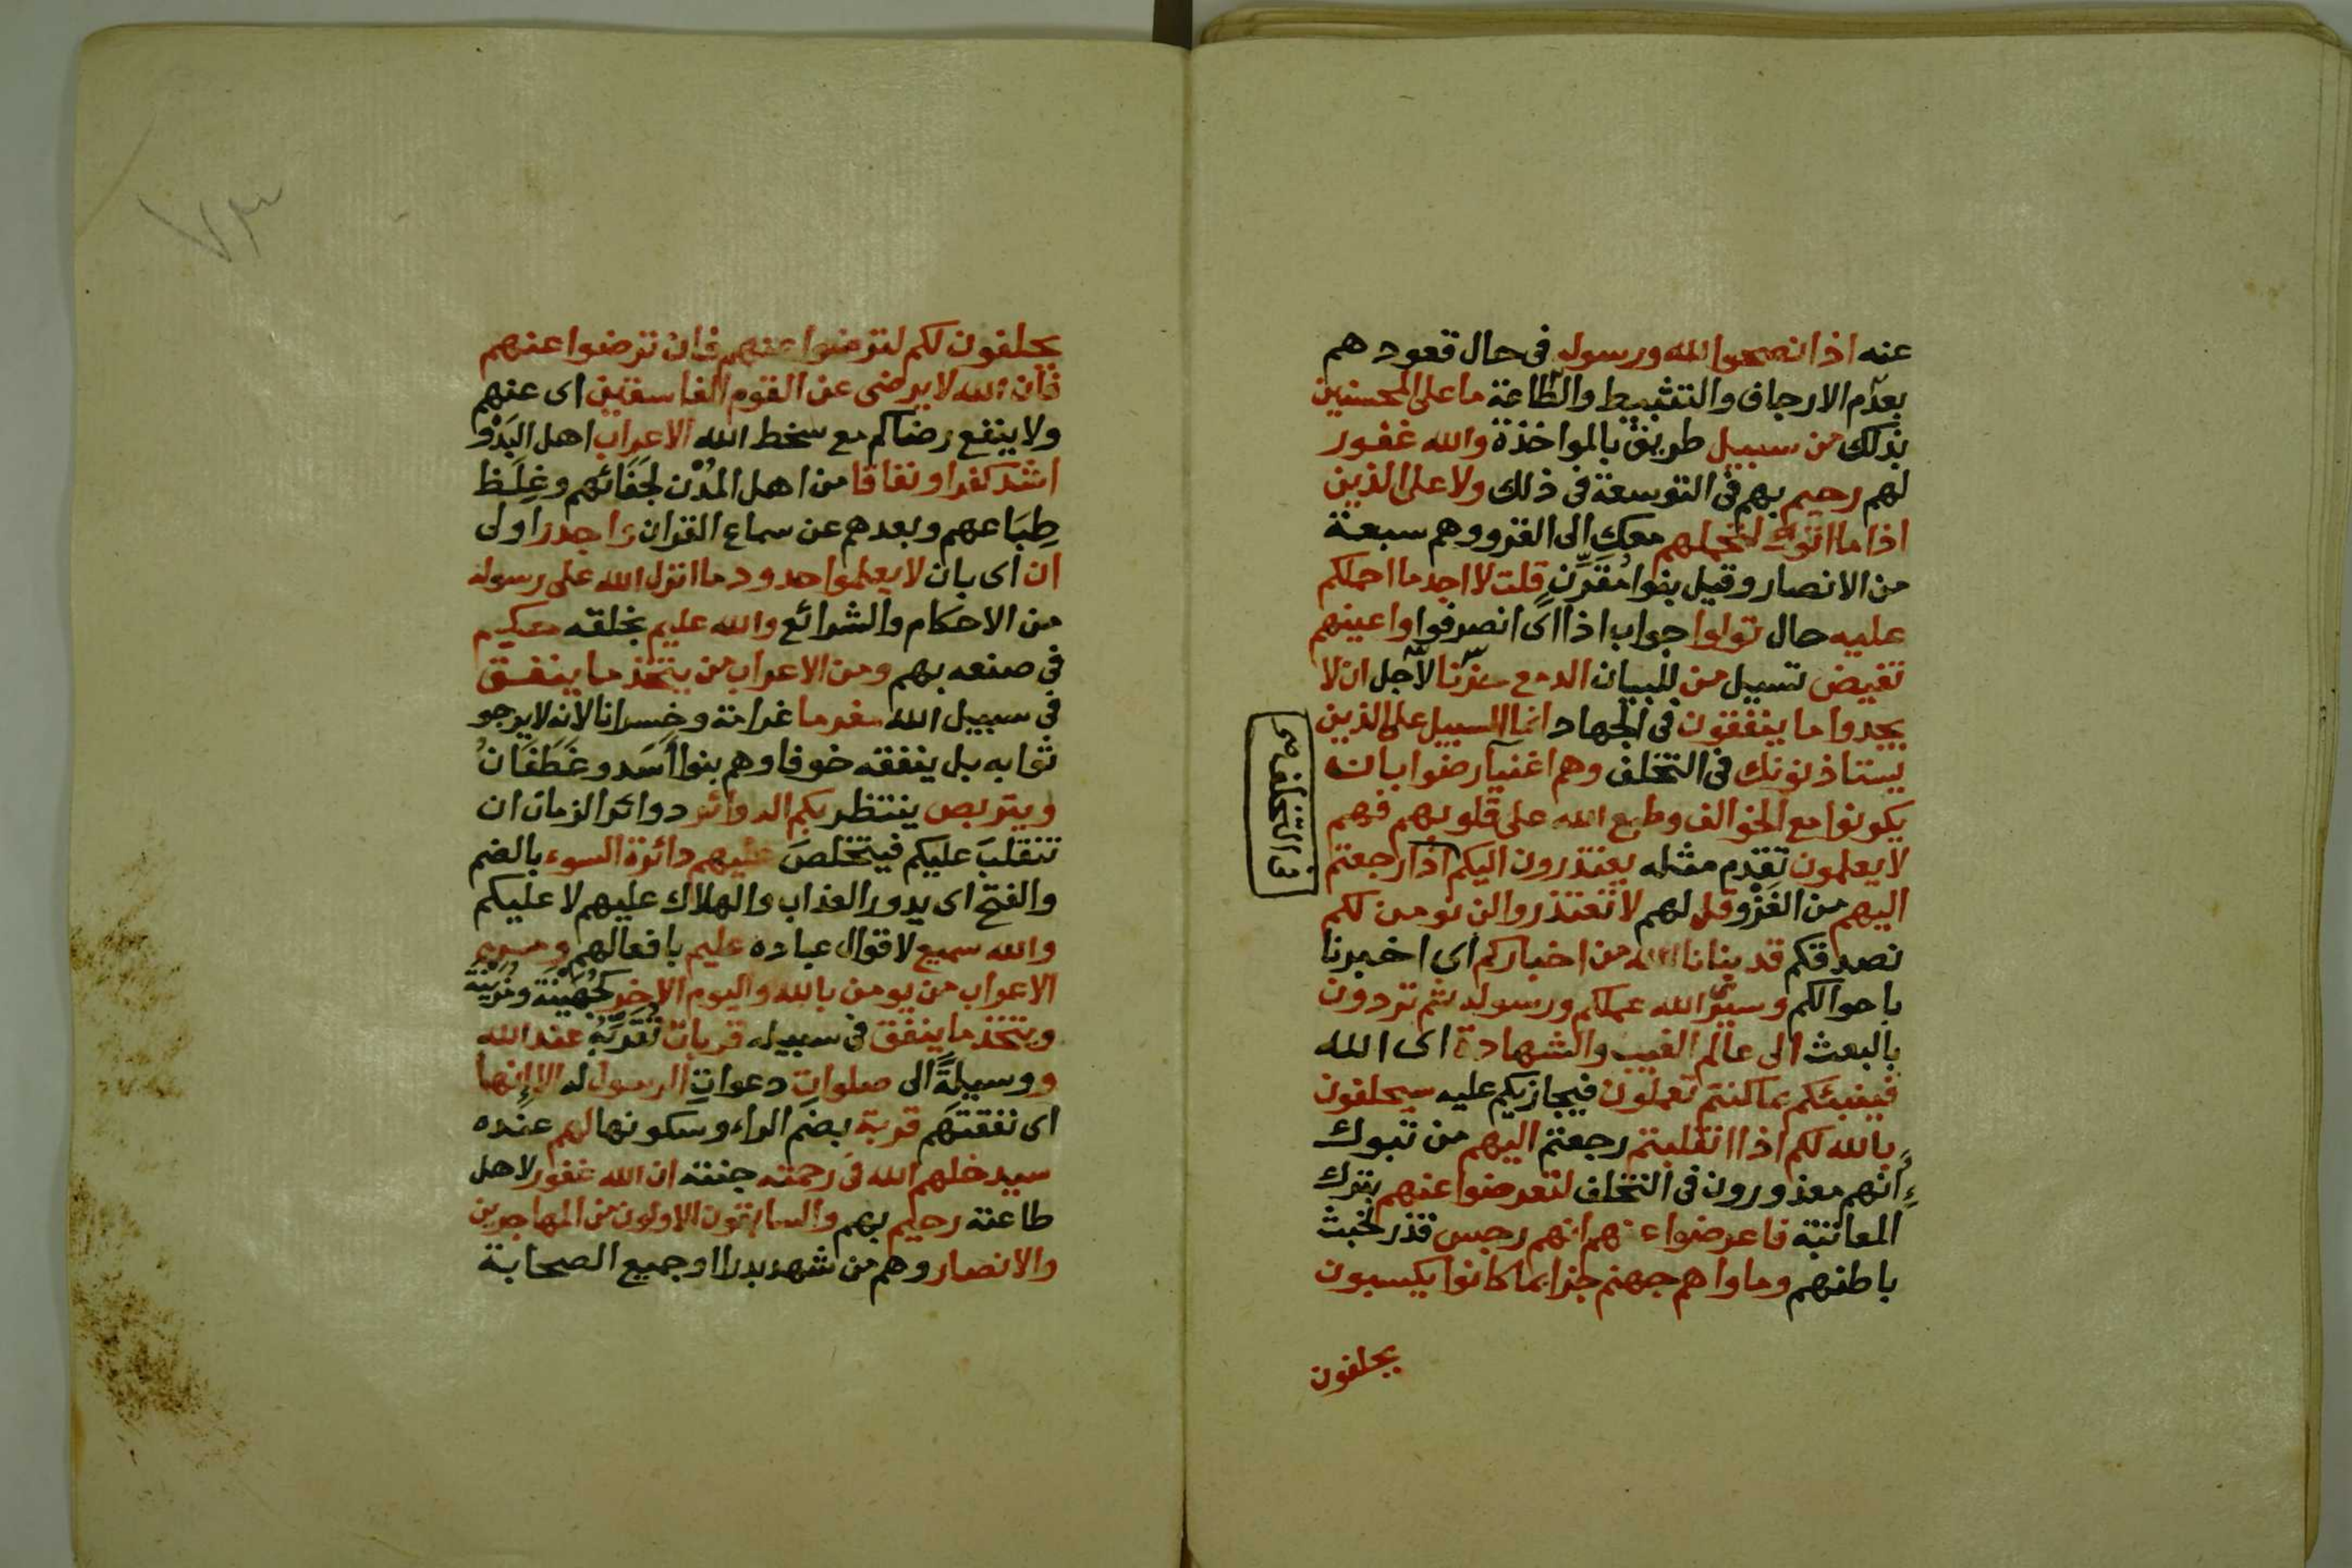 عنه اذا نصحوا لله ورسوله فى حال قعودهم
بعدم الارجاف والتثبيط والطاعة ما على المحسنين
بذلك من سبيل طريق بالمواخذة والله غفور
لهم رحيم بهم فى التوسعة فى ذلك ولا على الذين
اذا ما اتوك لتحملهم معك الى الغزو وهم سبعة
من الانصار وقيل بنوا مُقَرِّنٍ قلت لا اجد ما احملكم
عليه حال تولوا جواب اذا اى انصرفوا واعينهم
تفيض تسيل من للبيان الدمع حزنا لاجل ان لا
يجدوا ما ينفقون فى الجهاد انما السبيل على الذين
يستاذنونك فى التخلف وهم اغنيآ رضوا بان
يكونوا مع الخوالف وطبع الله على قلوبهم فهم
لا يعلمون تقدم مثله يعتذرون اليكم اذا رجعتم
اليهم من الغَزْو قل لهم لا تعتذروا لن نومن لكم
نصدقكم قد نبانا الله من اخباركم اى اخبرنا
باحوالكم وسيرى الله عملكم ورسوله ثم تردون
بالبعث الى عالم الغيب والشهادة اى الله
فينبئكم بما كنتم تعملون فيجازيكم عليه سيحلفون
بالله لكم اذا انقلبتم رجعتم اليهم من تبوك
انهم معذورون فى التخلف لتعرضوا عنهم بترك
المعاتبة فاعرضوا عنهم انهم رجس قذر لخبث
باطنهم وماواهم جهنم جزا بما كانوا يكسبون
يحلفون
فى التخلف
يحلفون لكم لترضوا عنهم فان ترضوا عنهم
فان الله لا يرضى عن القوم الفاسقين اى عنهم
ولا ينفع رضاكم مع سخط الله الاعراب اهل البَدْو
اشد كفرا ونفاقا من اهل المُدْن لجَفَائهم وغِلَظ
طِبَاعهم وبعدهم عن سماع القران واجدر اولى
ان اى بان لا يعلموا حدود ما انزل الله على رسوله
من الاحكام والشرائع والله عليم بخلقه حكيم
فى صنعه بهم ومن الاعراب من يتخذ ما ينفق
فى سبيل الله مغرما غرامة وخسرانا لانه لا يرجو
ثوابه بل ينفقه خوفا وهم بنوا أسَد وغَطَفَانُ
ويتربص ينتظر بكم الدوائر دوائر الزمان ان
تنقلبَ عليكم فيتخلصَ عليهم دائرة السوء بالضم
والفتح اى يدور العذاب والهلاك عليهم لا عليكم
والله سميع لاقوال عباده عليم بافعالهم ومن
الاعراب من يومن بالله واليوم الاخر كجُهَيْنَة ومُزَيْنَة
ويتخذ ما ينفق فى سبيله قربات تُقَرِّبُه عند الله
ووسيلةً الى صلوات دعوات الرسول له الا إنها
اى نفقتهم قربة بضم الراء وسكونها لهم عنده
سيدخلهم الله فى رحمته جنته ان الله غفور لاهل
طاعته رحيم بهم والسابقون الاولون من المهاجرين
والانصار وهم من شهد بدرا او جميع الصحابة